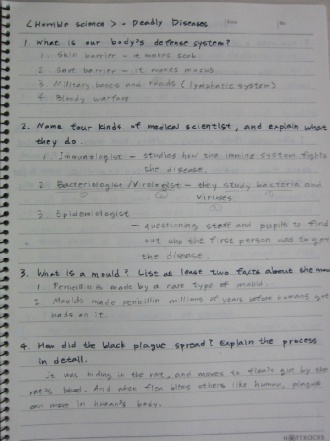 <Horrible science> - Deadly Diseases
1. What is our body's defense system?
1. Skin barrier - it makes scab.
2. Snot barrier - it makes mucus.
3. Military bases and roads (lymphatic system)
4. Bloody warfare
2. Name four kinds of medical scientist, and explain what
they do.
1. Immunologist - studies how the immune system fights
the disease.
2. Bacteriologist/Virologist - they study bacteria and
viruses
3. Epidemiologist
- questioning staff and pupils to find
out who the first person was to get
the disease.
3. What is a mould? List at least two facts about the mou
1. Penicillin is made by a rare type of mould.
2. Moulds made penicillin millions of years before humans got
hands on it.
4. How did the black plague spread? Explain the process
in detail.
it was hiding in the rat, and moves to flea's gut by the
rat's blood. And when flea bites others like human, plague
can move in human's body.